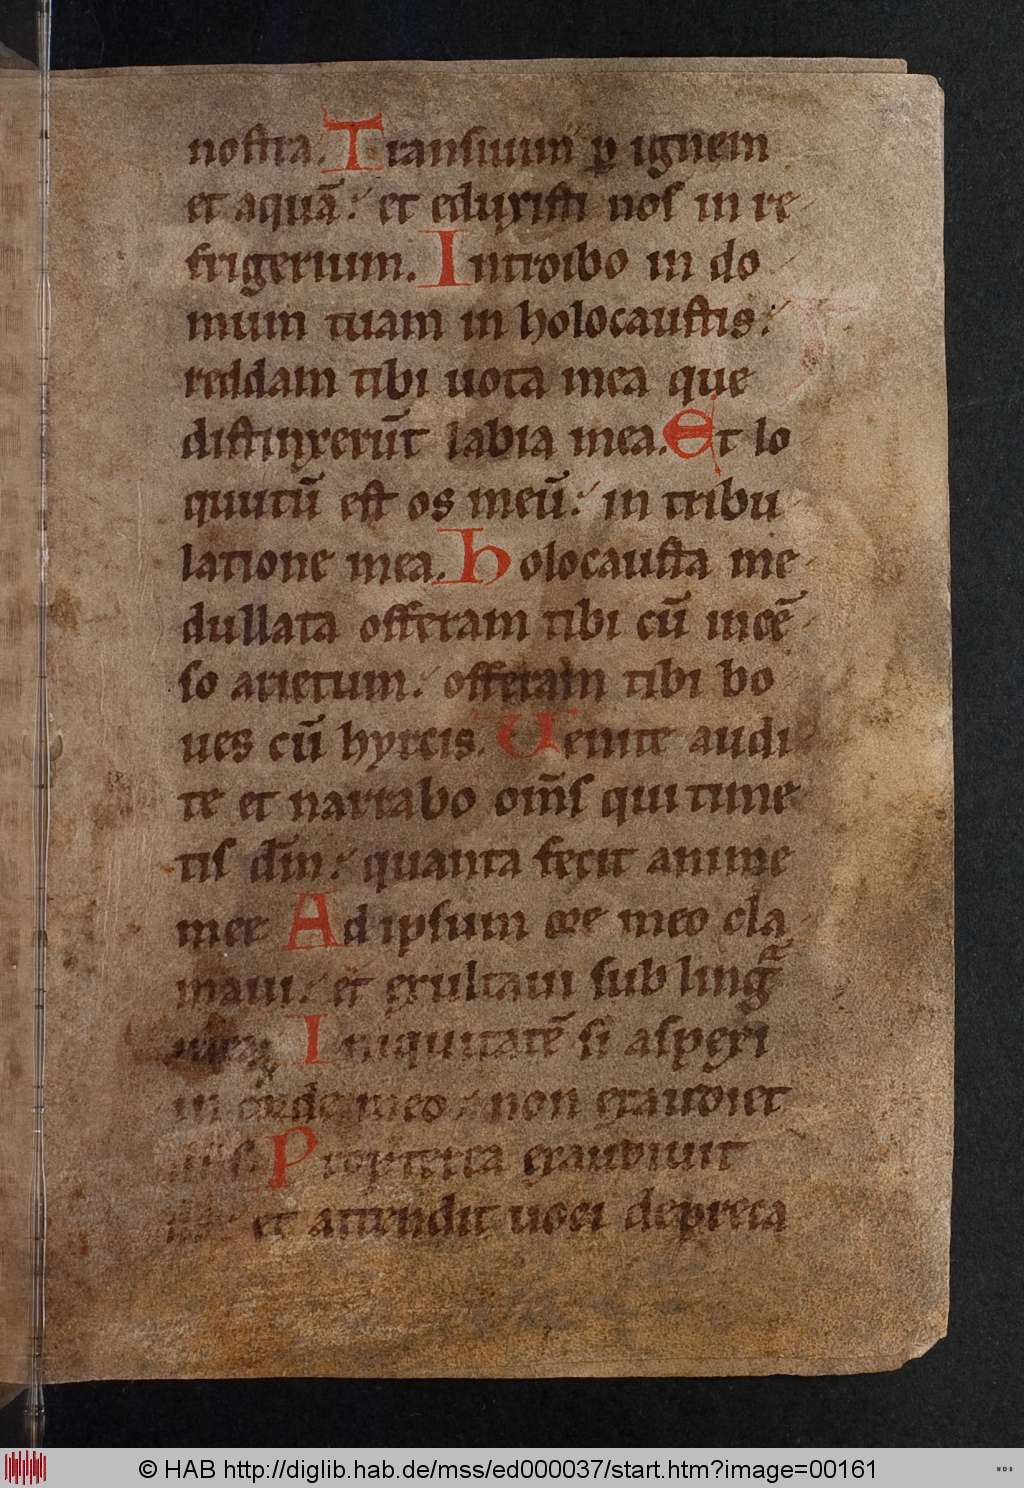 nostra. Transiuim᷒ ꝑ ignem
et aquā: et eduxisti nos in re
frigerium. Introibo in do
mum tuam in holocaustis:
reddam tibi uota mea que
distinxerūt labia mea. Et lo
quutū est os meū: in tribu
latione mea. Holocausta me
dullata offeram tibi cū incē
so arietum: offeram tibi bo
ues cū hyrcis. Uenite audi
te et narrabo om̄s qui time
tis dm̄: quanta fecit anime
mee Ad ipsum ore meo cla
maui: et exultaui sub lingᷓ
mea Iniquitatē si aspexi
in corde meo: non exaudiet
Propterea exaudiuit
et attendit uoci depreca
© HAB http://diglib.hab.de/mss/ed000037/start.htm?image=00161